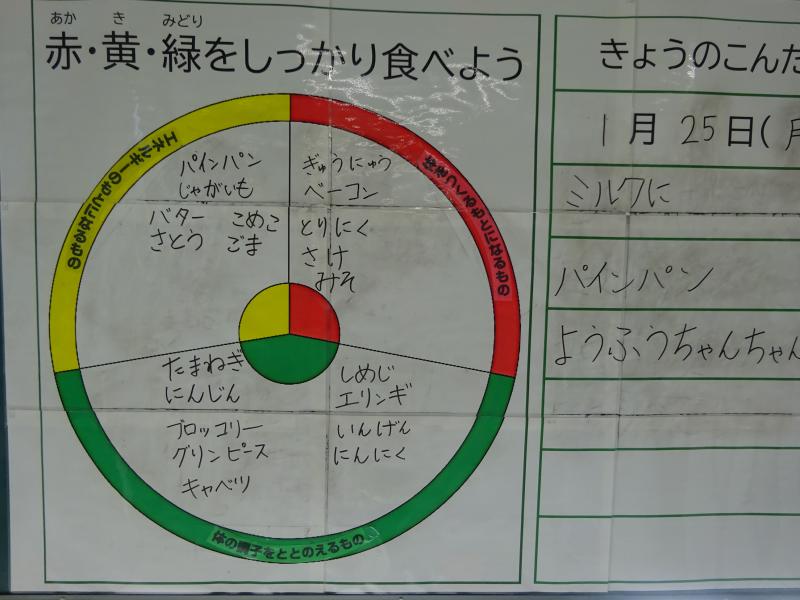 あか き みどり
赤・黄・緑をしっかり食べよう
エネルギーのもとになるもの
体をつくるもとになるもの
パインパン
じゃがいも
バター こめこ
さとう ごま
ぎゅうにゅう
ベーコン
とりにく
さけ
みそ
たまねぎ
にんじん
ブロッコリー
グリンピース
キャベツ
しめじ
エリンギ
いんげん
にんにく
体の調子をととのえるもの
きょうのこんだ
1月25日(月
ミルクに
パインパン
ようふうちゃんちゃん